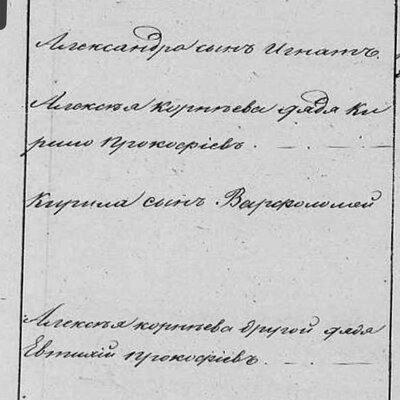 Александра сынъ Игнатъ.
Алексѣя корнѣева дядя Ки
рило Прокофіевъ.
Кирила сынъ Варфоломей
Алексѣя корнѣева другой дядя
Евтихій Прокофіевъ.